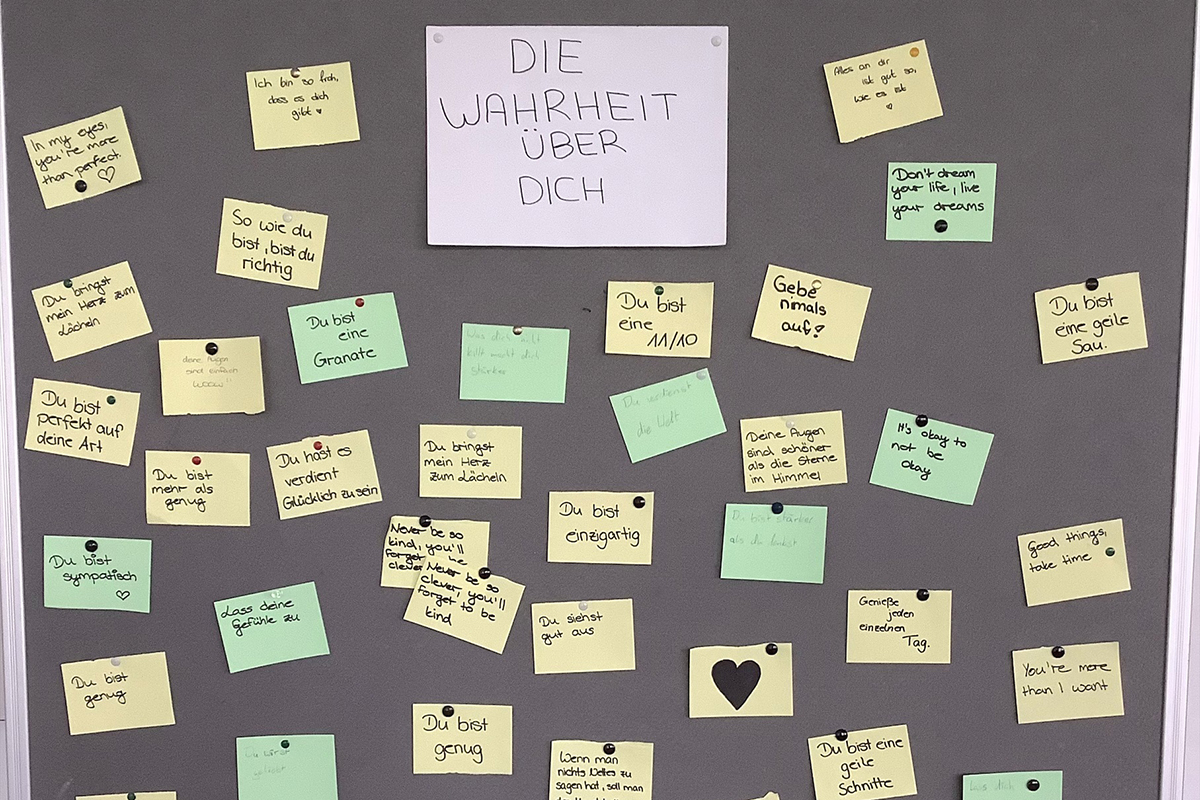 DIE
WAHRHEIT
ÜBER
DICH
Ich bin so froh,
dass es dich
gibt
Alles an dir
ist gut so,
wie es ist
In my eyes,
you're more
than perfect.
Don't dream
your life, live
your dreams
So wie du
bist, bist du
richtig
Du bringst
mein Herz zum
Lächeln
Du bist
eine
Granate
Du bist
eine
11/10
Gebe
nimals
auf!
Du bist
eine geile
Sau.
deine Augen
sind einfach
wooow!!
Was dich nicht
killt macht dich
stärker
Du verdienst
die Welt
Du bist
perfekt auf
deine Art
Du bist
mehr als
genug
Du hast es
verdient
Glücklich zu sein
Du bringst
mein Herz
zum Lächeln
Deine Augen
sind schöner
als die Sterne
im Himmel
It's okay to
not be
okay
Du bist
einzigartig
Du bist stärker
als du denkst
Never be so
kind, you'll
forget to be
clever
Never be so
clever, you'll
forget to be
kind
Good things,
take time
Du bist
sympatisch
Lass deine
Gefühle zu
Du siehst
gut aus
Genieße
jeden
einzelnen
Tag.
You're more
than I want
Du bist
genug
Du bist
genug
Du wirst
geliebt
Wenn man
nichts Nettes zu
sagen hat, soll man
Du bist eine
geile
Schnitte